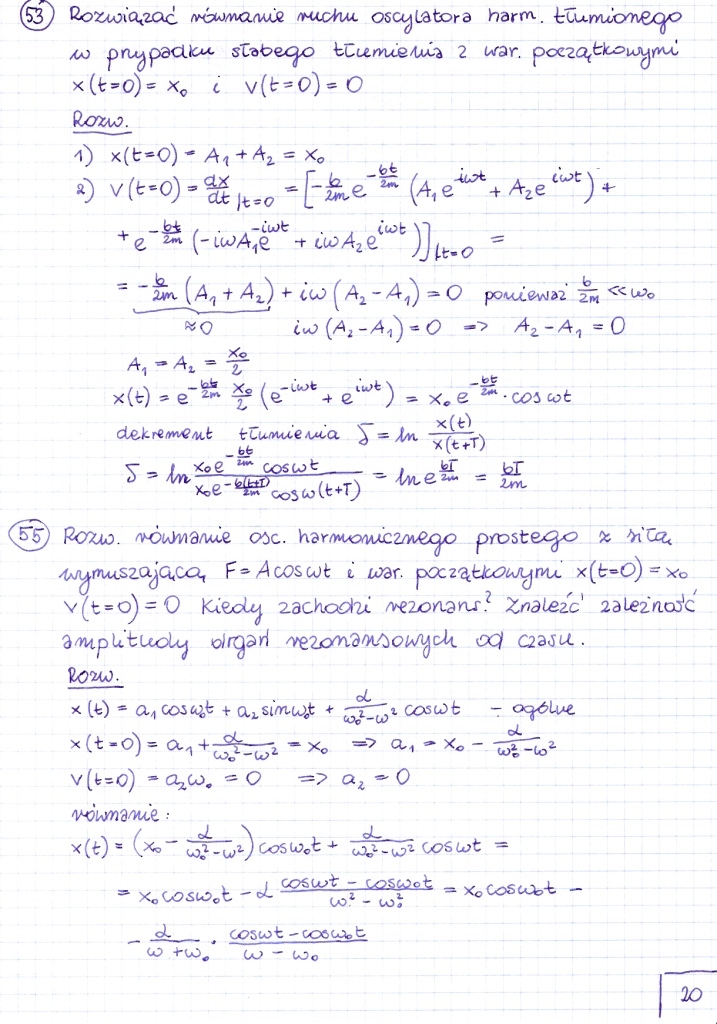 53 Rozwiązać równanie ruchu oscylatora harm. tłumionego
w przypadku słabego tłumienia z war. początkowymi
x(t=0) = x₀ i v(t=0) = 0
Rozw.
1) x(t=0) = A₁ + A₂ = x₀
2) v(t=0) = dx/dt |t=0 = [-b/2m e^(-bt/2m) (A₁e^(-iωt) + A₂e^(iωt)) +
+ e^(-bt/2m) (-iωA₁e^(-iωt) + iωA₂e^(iωt))]|t=0 =
= -b/2m (A₁ + A₂) + iω(A₂ - A₁) = 0 ponieważ b/2m << ω₀
≈0 iω(A₂ - A₁) = 0 => A₂ - A₁ = 0
A₁ = A₂ = x₀/2
x(t) = e^(-bt/2m) x₀/2 (e^(-iωt) + e^(iωt)) = x₀e^(-bt/2m) · cosωt
dekrement tłumienia δ = ln x(t)/x(t+T)
δ = ln x₀e^(-bt/2m) cosωt / x₀e^(-b(t+T)/2m) cosω(t+T) = ln e^(bT/2m) = bT/2m
55 Rozw. równanie osc. harmonicznego prostego z siłą
wymuszającą F = Acosωt i war. początkowymi x(t=0) = x₀
v(t=0) = 0 Kiedy zachodzi rezonans? Znaleźć zależność
amplitudy drgań rezonansowych od czasu.
Rozw.
x(t) = a₁cosω₀t + a₂sinω₀t + α/(ω₀²-ω²) cosωt - ogólne
x(t=0) = a₁ + α/(ω₀²-ω²) = x₀ => a₁ = x₀ - α/(ω₀²-ω²)
v(t=0) = a₂ω₀ = 0 => a₂ = 0
równanie:
x(t) = (x₀ - α/(ω₀²-ω²)) cosω₀t + α/(ω₀²-ω²) cosωt =
= x₀cosω₀t - α (cosωt - cosω₀t)/(ω² - ω₀²) = x₀cosω₀t -
- α/(ω+ω₀) · (cosωt - cosω₀t)/(ω - ω₀)
20